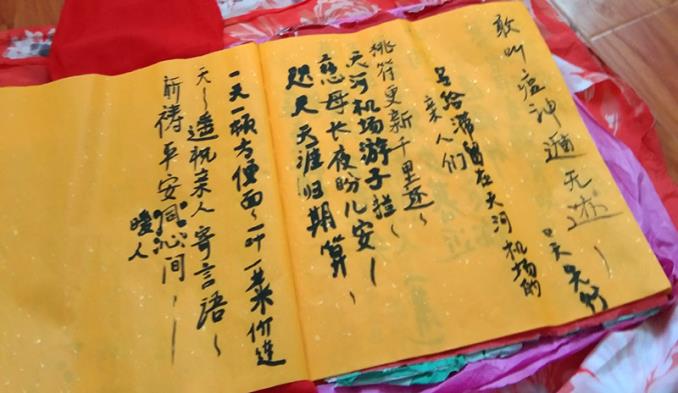 敢叫瘟神遁无迹~
天先行
写给滞留在天河机场的
亲人们
桃符更新千里返~
天河机场游子~
慈母长夜盼儿安~
咫尺天涯归期算~
一天一顿方便面~一叶一菜价连
天~遥祝亲人寄言语~
祈祷平安沁间~
暖人